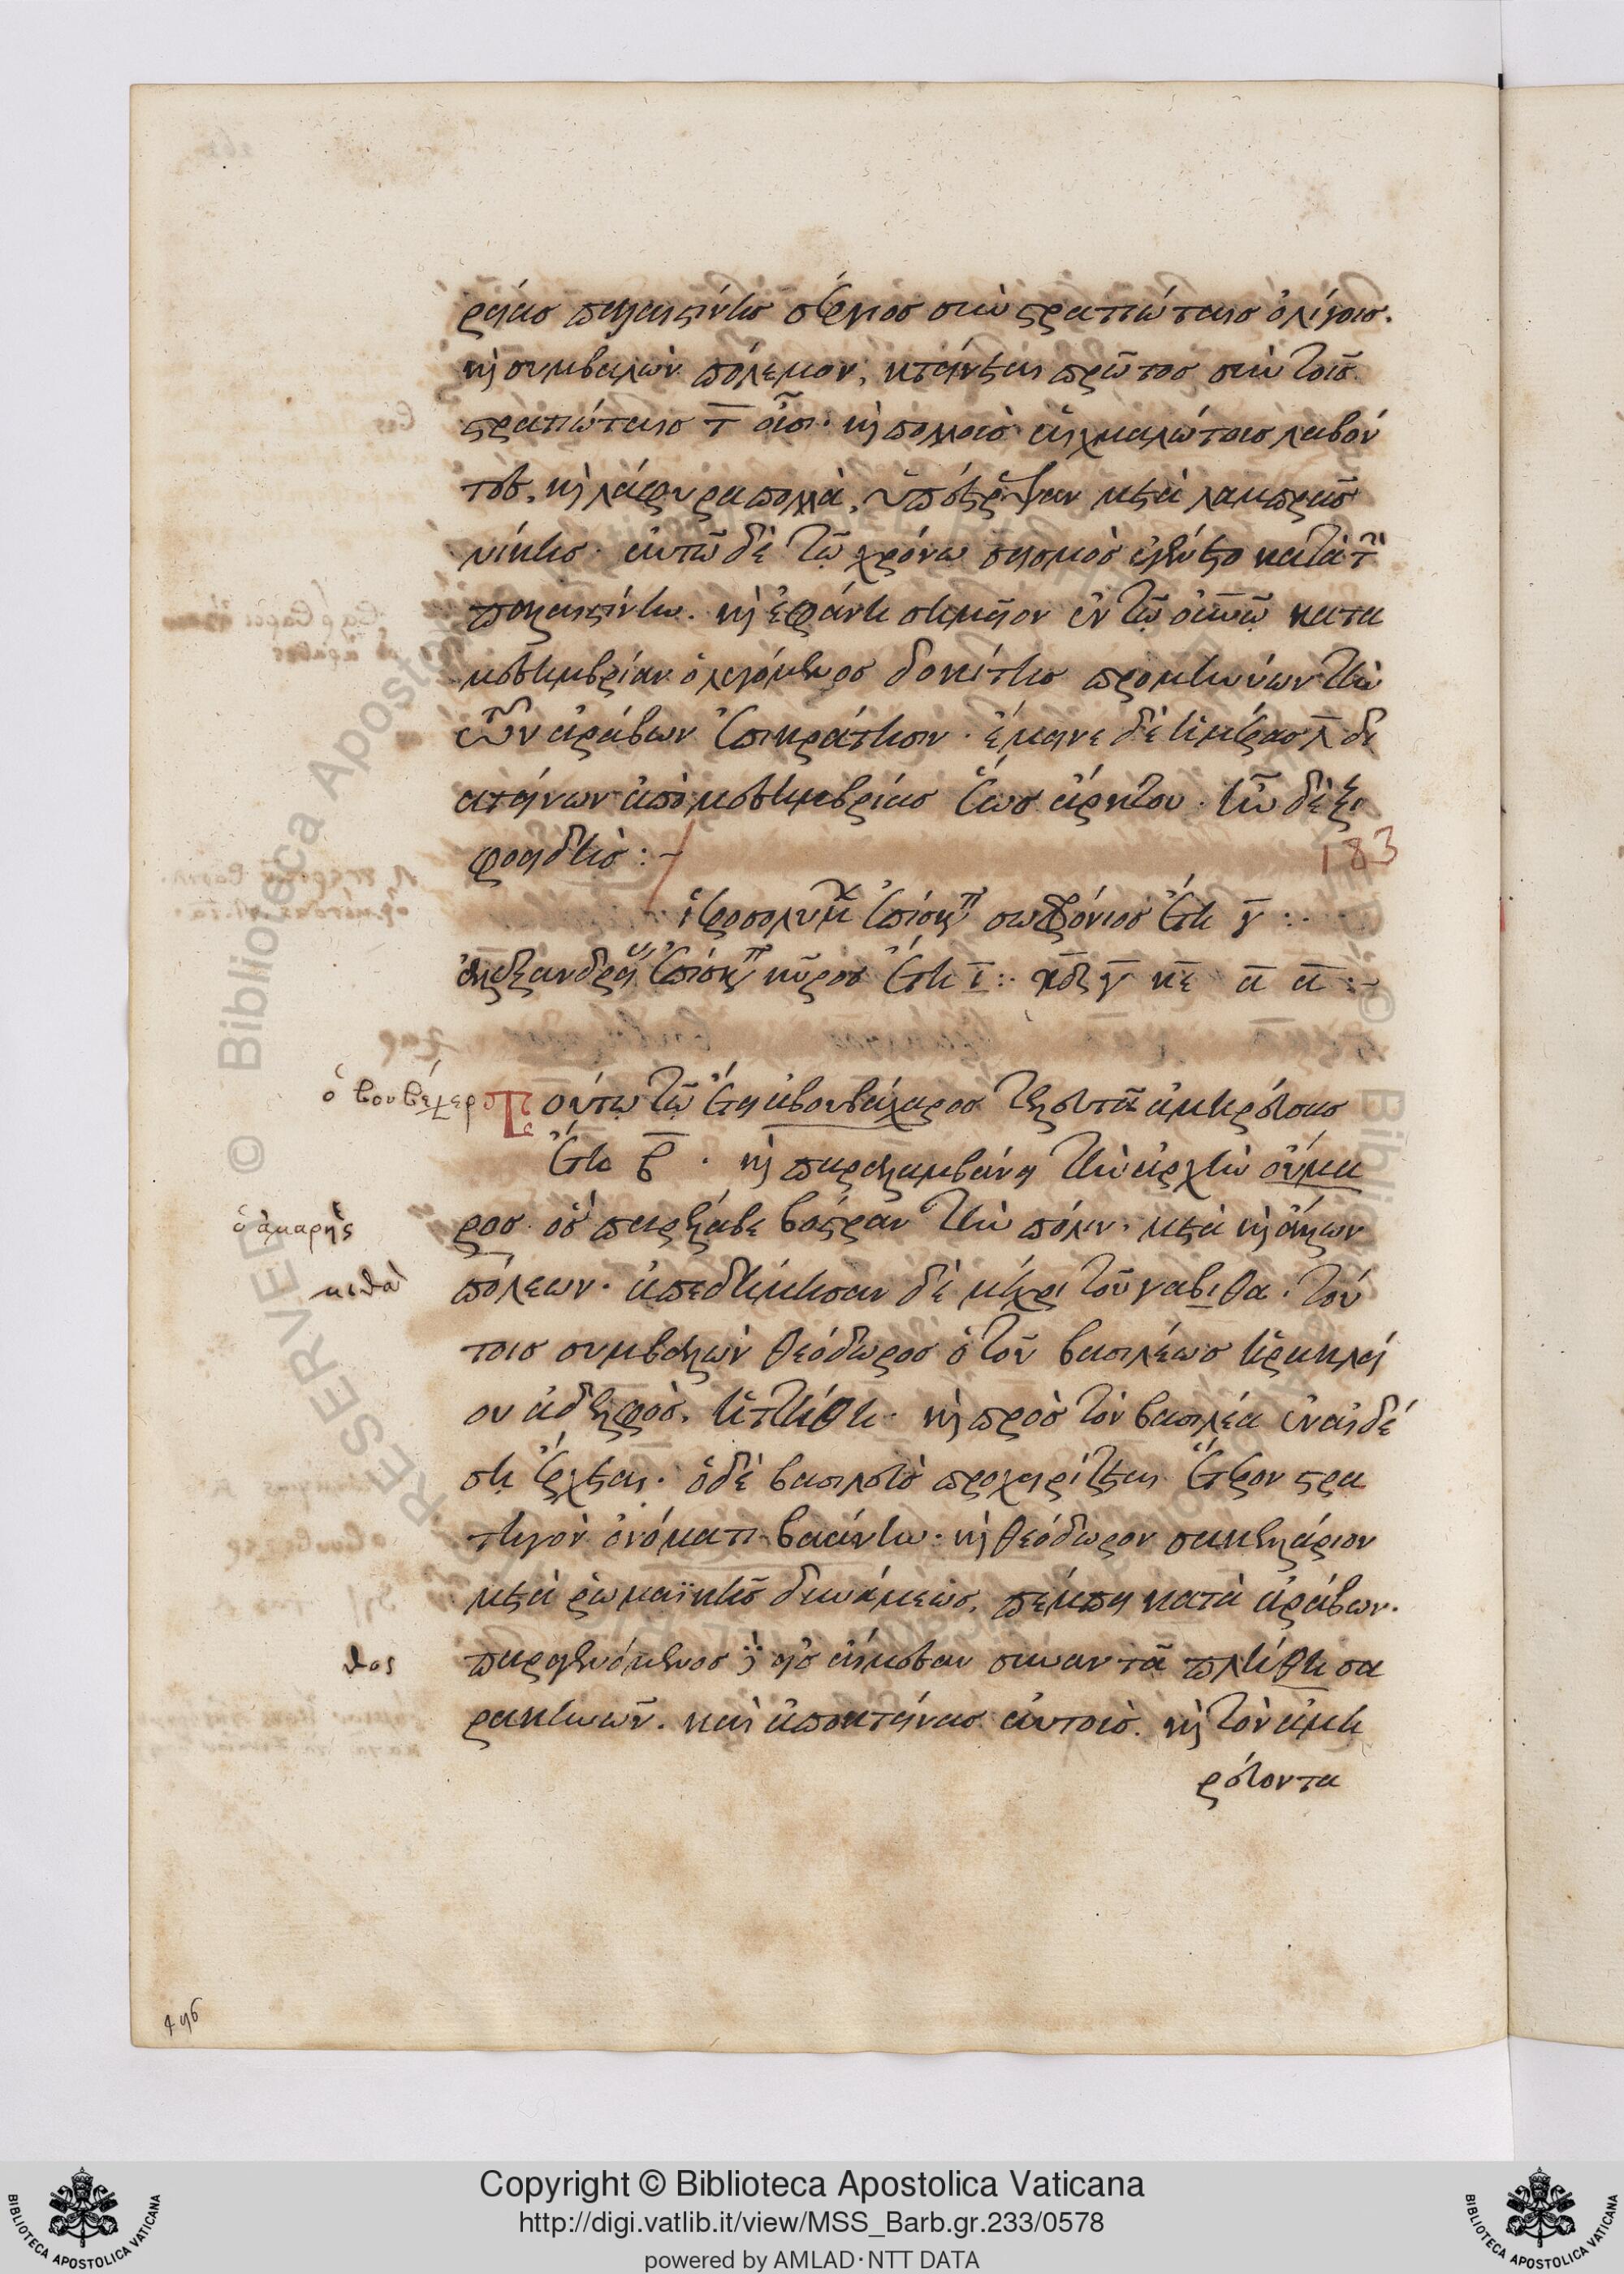 ρείας παλαιστίνης σέργιος σὺν στρατιώταις ὀλίγοις.
καὶ συμβαλὼν πόλεμον, κτείνεται πρῶτος σὺν τοῖς
στρατιώταις τ̅ οὖσι· καὶ πολλοὺς αἰχμαλώτους λαβόν
τες, καὶ λάφυρα πολλὰ, ὑπέστρεψαν μετὰ λαμπρᾶς
νίκης· αὐτῶ δὲ τῶ χρόνω σεισμὸς ἐγένετο κατὰ τὴν
παλαιστίνην. καὶ ἐφάνη σημεῖον ἐν τῶ οὐνῶ κατα
μεσημβρίαν ὁ λεγόμενος δοκίτης προμηνύων τὴν
τῶν ἀράβων ἐπικράτησιν. ἔμεινε δὲ ἡμέρας λ̅ δι
ατείνων ἀπὸ μεσημβρίας ἕως ἄρκτου. ἦν δὲ ξι
φοειδής :-
183
ἱεροσολύμων ἐπίσκοπος σωφρόνιος ἔτη γ̅ :
ἀλεξανδρείας ἐπίσκοπος κῦρος ἔτη ι̅ :· κ̅δ γ̅ κ̅ε α̅ α̅ :-
ὁ βουβέτερ
Τούτω τῶ ἔτει ἀβουβάχαρος τελευτᾶ ἀμηρεύσας
ἔτη β̅ . καὶ παραλαμβάνει τὴν ἀρχὴν οὔμα
ὁ ἀμαρῆς
ρος. ὃς παρέλαβε βόστραν τὴν πόλιν. μετὰ καὶ ἄλλων
κιθὰ
πόλεων. ἀπεδήμησαν δὲ μέχρι τοῦ γαβιθα. τού
τοις συμβαλὼν θεόδωρος ὁ τοῦ βασιλέως ἡρακλεί
ου ἀδελφὸς, ἡττήθη. καὶ πρὸς τὸν βασιλέα ἐν αἰδέ
ση ἔρχεται. ὁ δὲ βασιλεὺς προχειρίζεται ἕτερον στρα
τηγὸν ὀνόματι βαάνην. καὶ θεόδωρον σακελλάριον
μετὰ ῥωμαϊκῆς δυνάμεως, πέμπει κατὰ ἀράβων.
θος
παραγενόμενος εἰς αἴμεσαν συναντᾶ πλήθη σα
ρακηνῶν. καὶ ἀποκτείνας αὐτοὺς. καὶ τὸν ἀμη
ρεύοντα
496
Copyright © Biblioteca Apostolica Vaticana
http://digi.vatlib.it/view/MSS_Barb.gr.233/0578
powered by AMLAD·NTT DATA
BIBLIOTECA APOSTOLICA VATICANA
BIBLIOTECA APOSTOLICA VATICANA